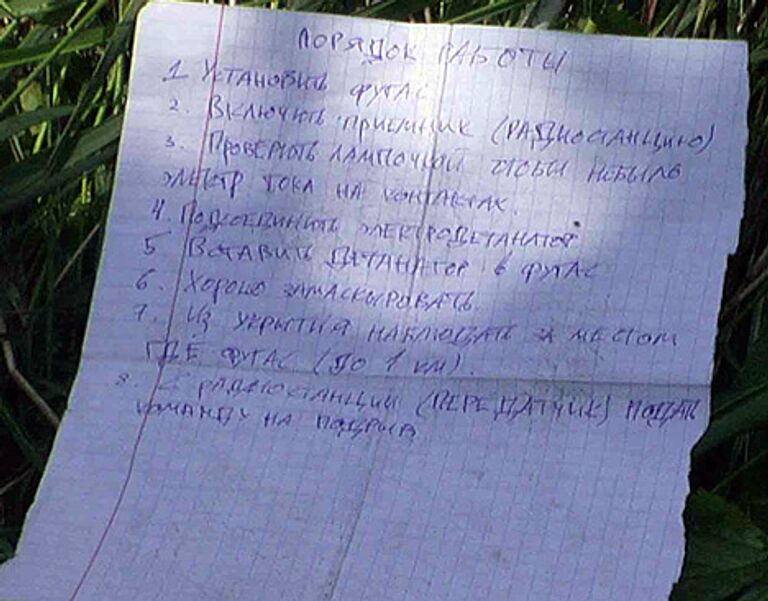 ПОРЯДОК РАБОТЫ
1 УСТАНОВИТЬ ФУГАС
2. ВКЛЮЧИТЬ ПРИЕМНИК (РАДИОСТАНЦИЮ)
3. ПРОВЕРИТЬ ЛАМПОЧКОЙ ЧТОБЫ НЕБЫЛО
ЭЛЕКТР ТОКА НА КОНТАКТАХ.
4. ПОДСОЕДИНИТЬ ЭЛЕКТРОДЕТАНАТОР
5 ВСТАВИТЬ ДЕТАНАТОР в ФУГАС
6. ХОРОШО ЗАМАСКЫРОВАТЬ.
7. ИЗ УКРЫТИЯ НАБЛЮДАТЬ ЗА МЕСТОМ
ГДЕ ФУГАС (ДО 1 КМ).
8. С РАДИОСТАНЦИИ (ПЕРЕДАТЧИК) ПОДАТЬ
КОМАНДУ НА ПОДРЫВ